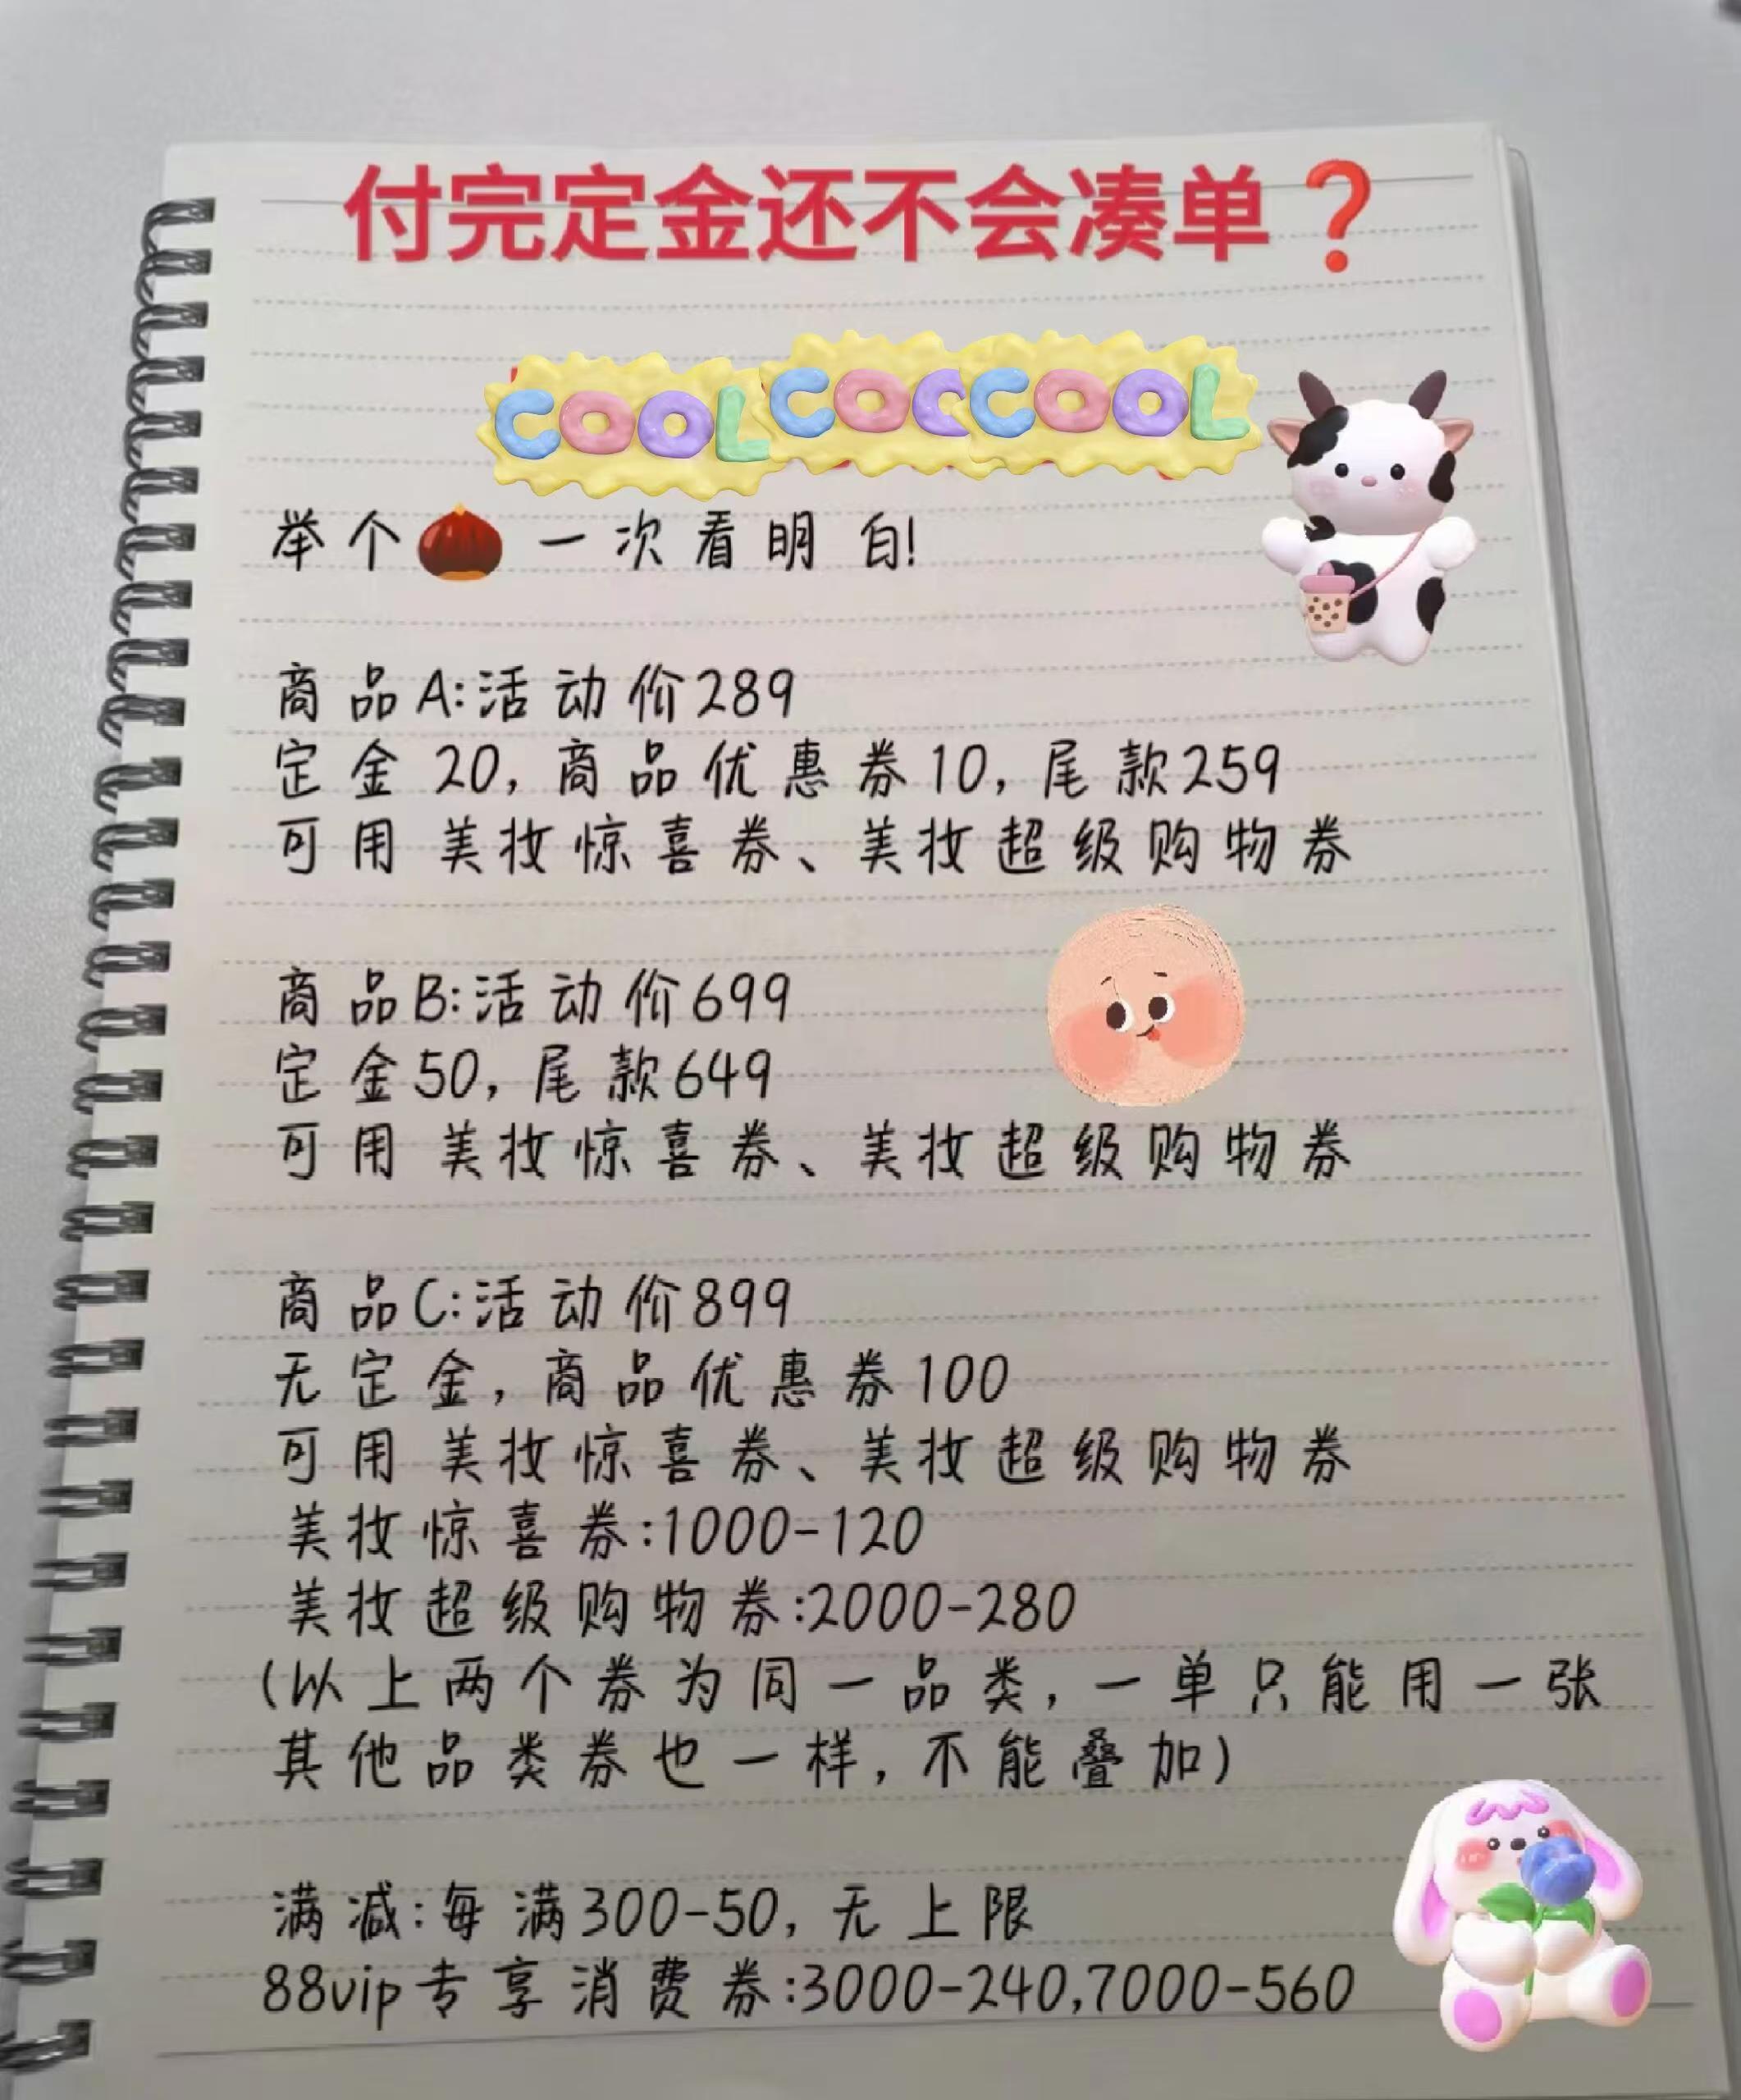 付完定金还不会凑单❓
COOLCOCCOOL
举个🌰一次看明白!
商品A:活动价289
定金20,商品优惠券10,尾款259
可用美妆惊喜券、美妆超级购物券
商品B:活动价699
定金50,尾款649
可用美妆惊喜券、美妆超级购物券
商品C:活动价899
无定金,商品优惠券100
可用美妆惊喜券、美妆超级购物券
美妆惊喜券:1000-120
美妆超级购物券:2000-280
(以上两个券为同一品类,一单只能用一张
其他品类券也一样,不能叠加)
满减:每满300-50,无上限
88vip专享消费券:3000-240,7000-560